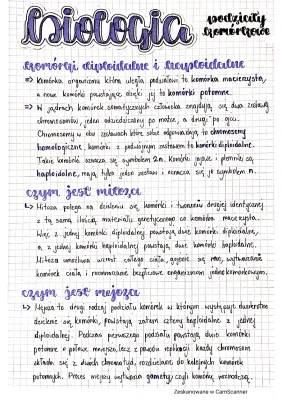 biologia
podziały
komórkowe
komórki diploidalne i haploidalne
⇒ Komórka organizmu która ulega podziałowi to komórka macierzysta,
a nowe komórki powstające dzięki jej to komórki potomne.
⇒ W jądrach komórek somatycznych człowieka znajdują się dwa zestawy
chromosomów, jeden odziedziczony po matce, a drugi po ojcu.
Chromosomy w obu zestawach które sobie odpowiadają, to chromosomy
homologiczne. Komórki z podwojonym zestawem to komórki diploidalne.
Takie komórki oznacza się symbolem 2n. Komórki jajowe i plemniki są
haploidalne, mają tylko jeden zestaw i oznacza się je symbolem n.
czym jest mitoza
↳ Mitoza polega na dzieleniu się komórki i tworzeniu drugiej identycznej
z tą samą ilością materiału genetycznego co komórka macierzysta.
Więc z jednej komórki diploidalnej powstają dwie komórki diploidalne,
a z jednej komórki haploidalnej powstają dwie komórki haploidalne.
Mitoza umożliwia wzrost całego ciała, gojenie się ran, wytwarzanie
komórek ciała i rozmnażanie bezpłciowe organizmom jednokomórkowym.
czym jest mejoza
↳ Mejoza to drugi rodzaj podziału komórek w którym występuje dwukrotne
dzielenie się komórki, powstają zatem cztery haploidalne z jednej
diploidalnej. Podczas pierwszego podziału powstają dwie komórki
potomne o połowę mniejsze, lecz z powodu replikacji każdy chromosom
składa się z dwóch chromatyd, rozdzielane do kolejnych komórek
potomnych. Proces mejozy wytwarza gamety czyli komórki rozrodcze.
Zeskanowane w CamScanner